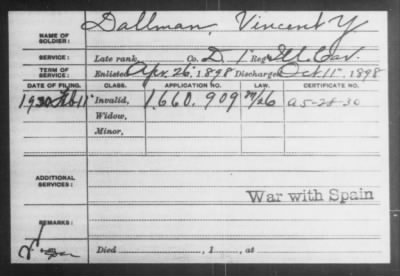 Dallman, Vincent Y
NAME OF SOLDIER:
SERVICE: Late rank, Co. D, 1 Reg't Ill. Cav.
TERM OF SERVICE: Enlisted Apr. 26, 1898 Discharged Oct. 11, 1898
DATE OF FILING. CLASS. APPLICATION NO. LAW. CERTIFICATE NO.
1930 Feb 11 Invalid, 1,660,909 A5-28-30
Widow,
Minor,
ADDITIONAL SERVICES:
War with Spain
REMARKS:
Died , 1 , at